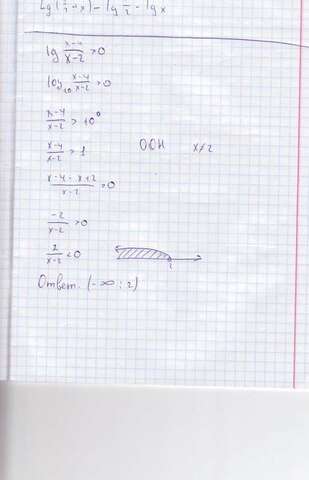 lg (1/2 + x) = lg 1/2 - lg x
lg (x-4)/(x-2) > 0
log₁₀ (x-4)/(x-2) > 0
(x-4)/(x-2) > 10⁰
(x-4)/(x-2) > 1 ООН x≠2
(x-4-x+2)/(x-2) > 0
-2/(x-2) > 0
2/(x-2) < 0
2
Ответ. (-∞; 2)